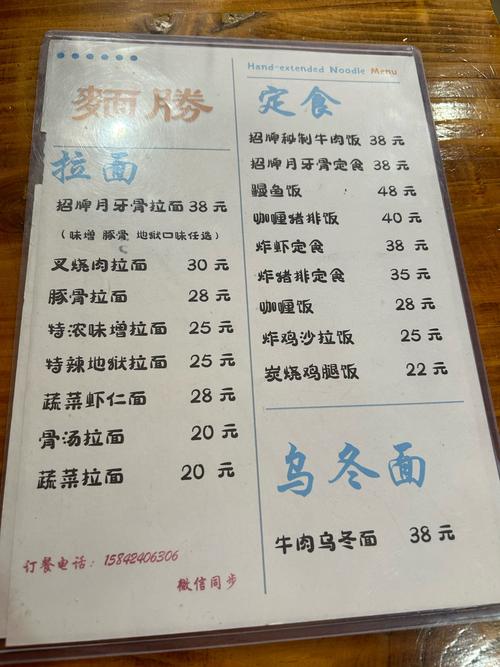 麵勝
拉面
招牌月牙骨拉面 38 元
（味增 豚骨 地狱口味任选）
叉烧肉拉面 30 元
豚骨拉面 28 元
特浓味增拉面 25 元
特辣地狱拉面 25 元
蔬菜虾仁面 28 元
骨汤拉面 20 元
蔬菜拉面 20 元
订餐电话：15842406306
微信同步
Hand-extended Noodle Menu
定食
招牌秘制牛肉饭 38 元
招牌月牙骨定食 38 元
鳗鱼饭 48 元
咖喱猪排饭 40 元
炸虾定食 38 元
炸猪排定食 35 元
咖喱饭 28 元
炸鸡沙拉饭 25 元
炭烧鸡腿饭 22 元
乌冬面
牛肉乌冬面 38 元